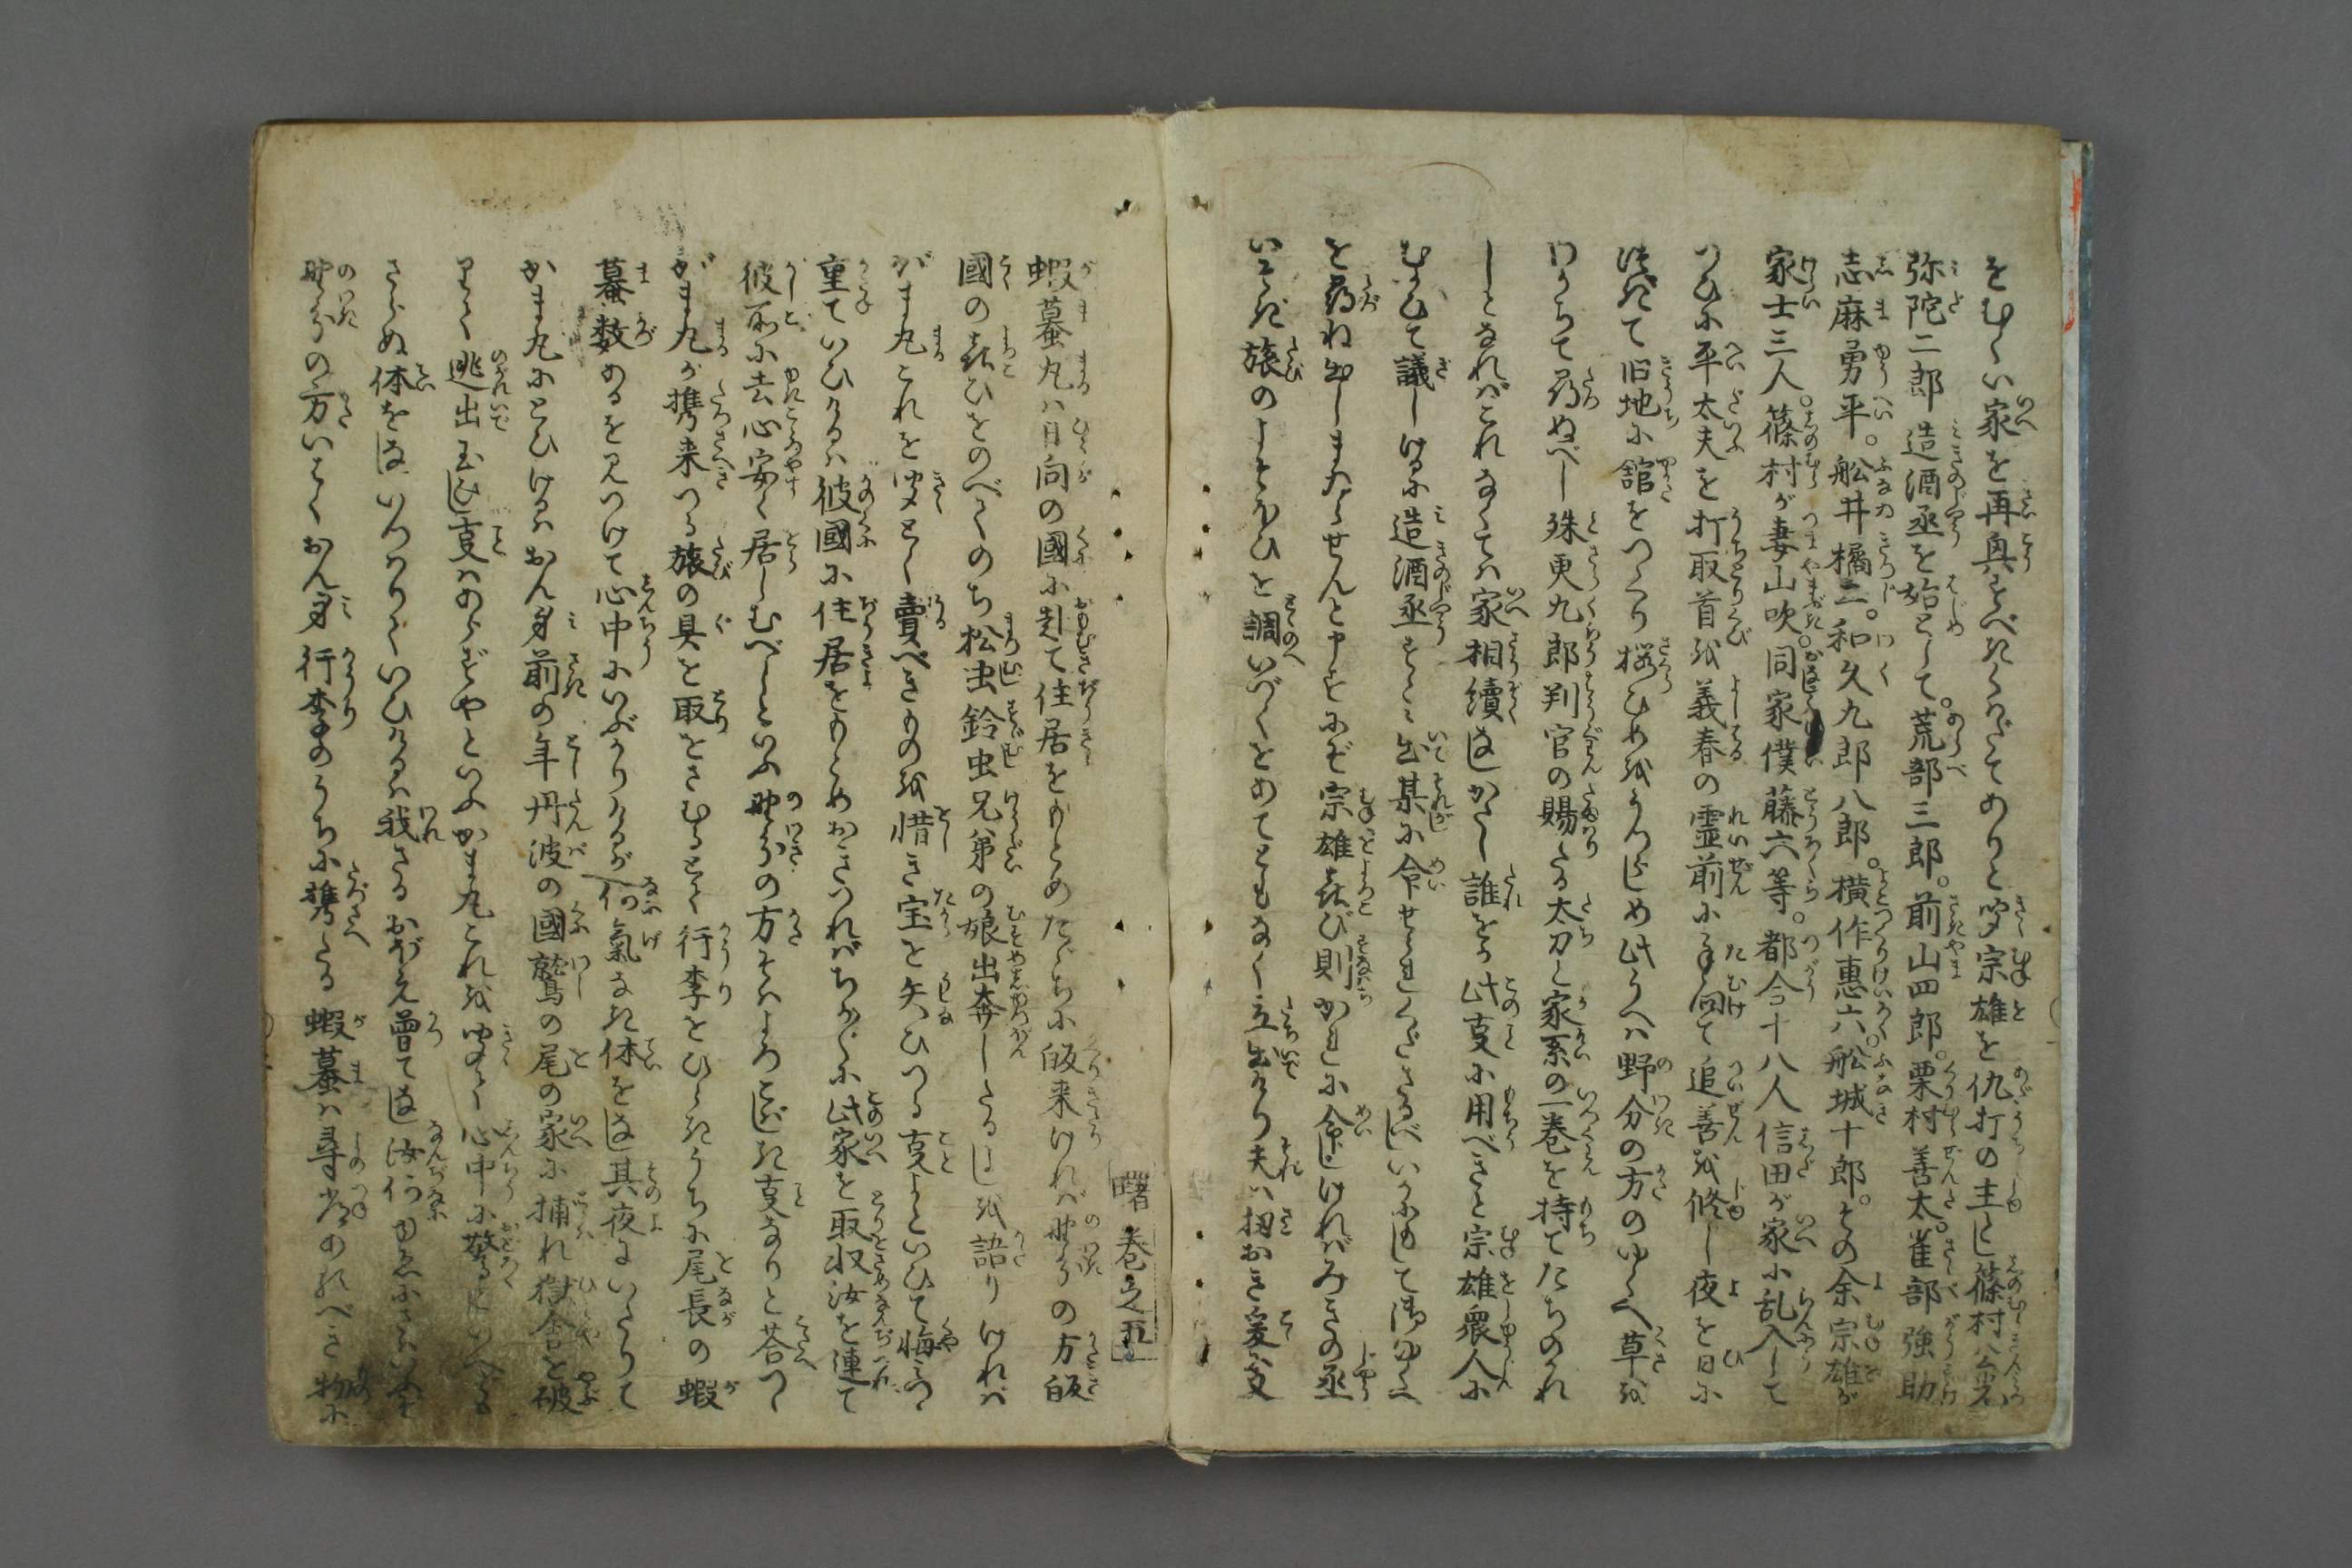 をむくい家を再興すべきくはだてありと聞宗雄を仇打の主とし篠村八
弥陀二郎造酒丞を始として。荒部三郎。前山四郎。栗村善太。雀部強助
志麻勇平。舩井橘二。和久九郎八郎。横作惠六。舩城十郎。その余宗雄が
家士三人。篠村が妻山吹。同家僕藤六等。都合十八人信田が家に乱入して
つひに平太夫を打取首を義春の霊前に手向て追善を修し夜を日に
つぎて旧地に舘をつくり桜ひめをうつし此うへは野分の方のゆくへ草を
わかちて尋ぬべし殊更九郎判官の賜たる太刀と家系の一巻を持てたちのかれ
しとなればこれなくては家相續なしがたし誰をか此支に用べきと宗雄衆人に
むかひて議しけるに造酒丞すゝみ出某に命せられくださるべしいかにもして御ゆくへ
を尋ね出しまゐらせんと申すにぞ宗雄喜び則かれに命じければみきの丞
いそぎ旅のよそほひを調いづくをあてともなく立出けり夫は扨おき爰に又
曙 巻之五
蝦蟇丸は日向の國に赴て住居をもとめたゞちに皈来ければ野分の方皈
國の喜ひをのべてのち松虫鈴虫兄弟の娘出奔したるよしを語りければ
がま丸これを聞とく賣べきものを惜き宝を失ひつる支よといひて悔つゝ
重ていひけるは彼國に住居をもとめおきつればちかぐに此家を取収汝を連て
彼所に去心安く居しむべしといふ野分の方そはよろこばしき支なりと荅つゝ
がま丸が携来つる旅の具を取をさむるとて行李をひらきうちに尾長の蝦
蟇数あるを見つけて心中にいぶかりけるが何氣なき体をなし其夜にいたりて
がま丸にとひけるはおん身前の年丹波の國鷲の尾の家に捕れ獄舎を破
りて逃出玉ひし支はあらずやといふがま丸これを聞て心中に驚といへども
さらぬ体をなしいつはりていひけるは我さるおぼえ曽てなし汝何ゆゑにさはいふぞ
野分の方いはくおん身行李のうちに携たる蝦蟇は尋常のあるべき物に